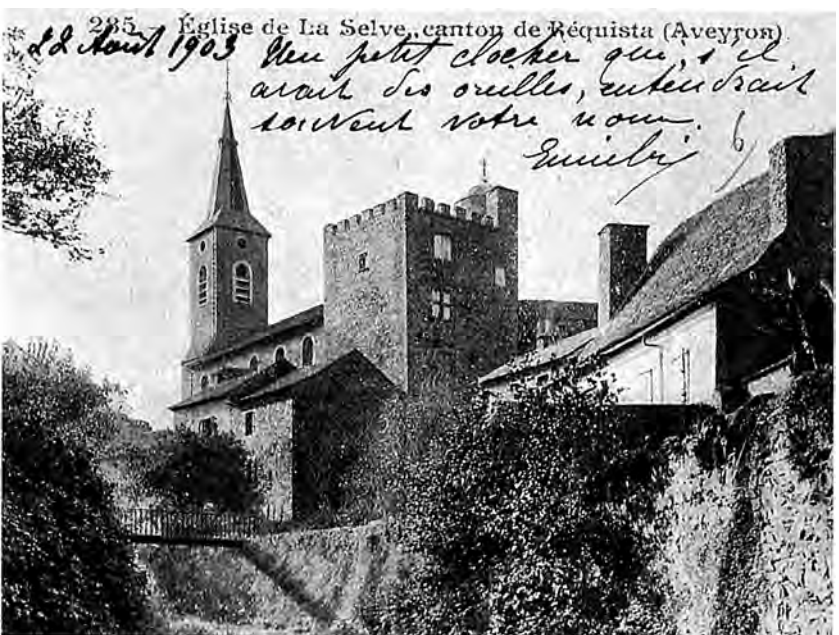 285. - Église de La Selve, canton de Réquista (Aveyron)
22 Août 1903 Un petit clocher qui, s'il
avait des oreilles, entendrait
souvent votre nom.